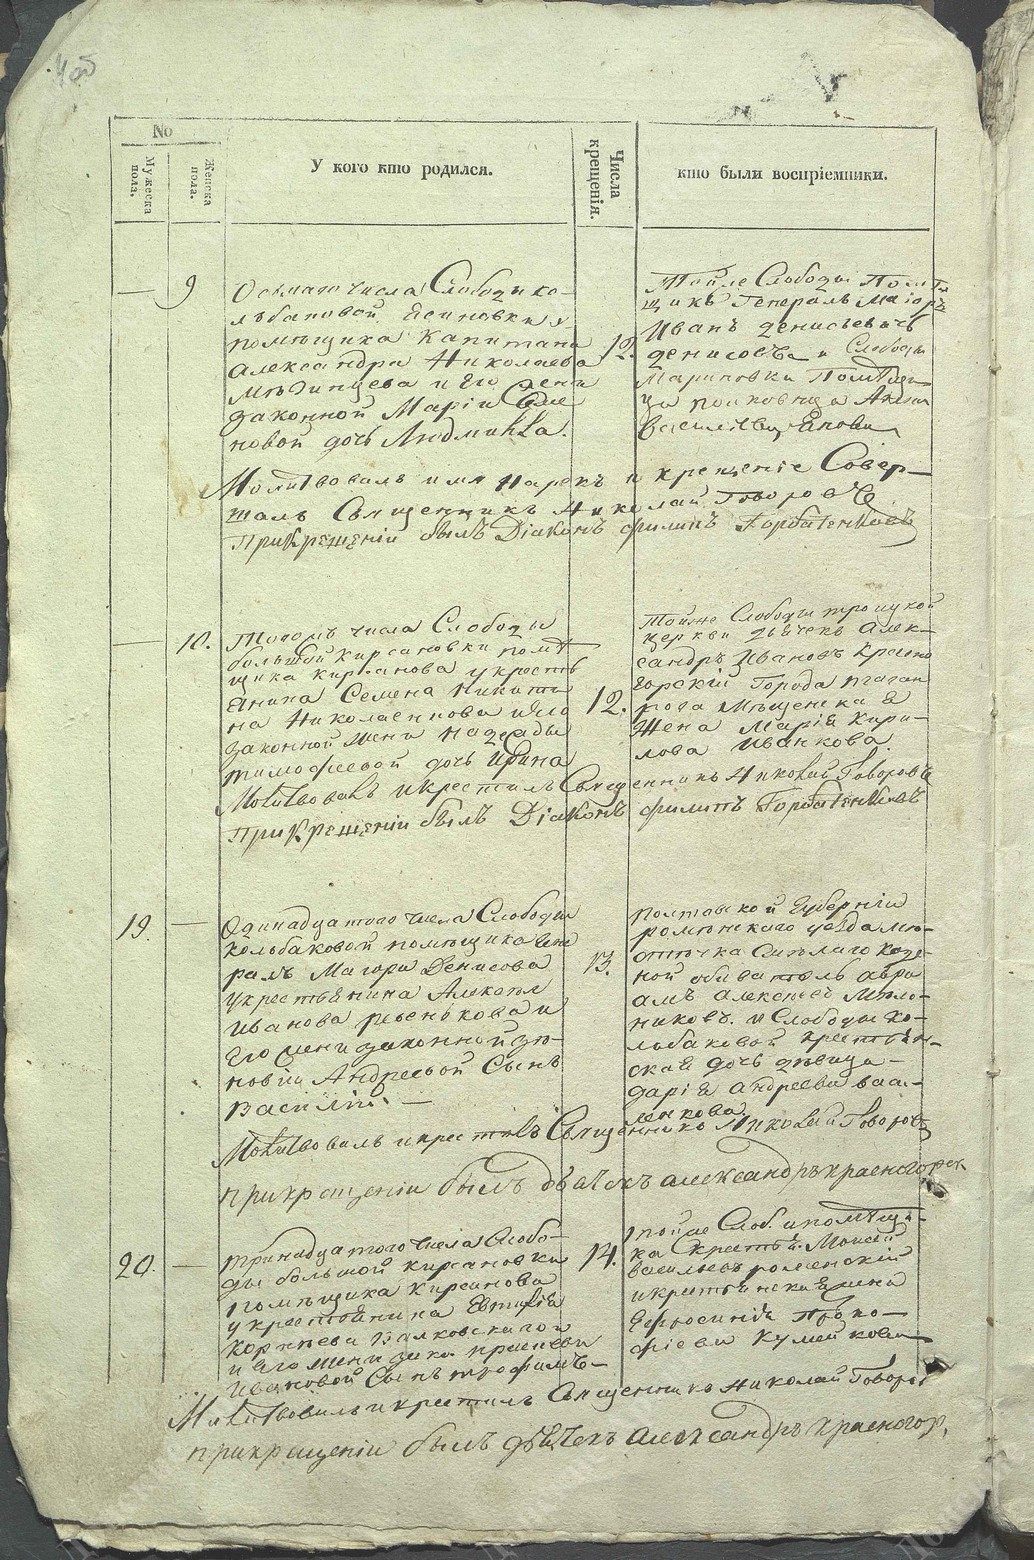 No
Мужеска пола.
Женска пола.
У кого кто родился.
Числа крещенія.
кто были воспріемники.
9
Осмаго числа Слободы ко-
лъбаковой Есиновки у
помѣщика Капитана
Александра Николаева
и Его жени
законной Маріи Семе
новой дочь Людмилла.
12.
Тойже Слободы Помѣ
щикъ Генералъ Маіоръ
Иванъ Денисьевичь
Денисовъ и Слободы
Мариновки Помѣщи
ца
Молитвовалъ имя нарекъ и крещеніе Совер-
шалъ Священникъ Николай Говоровъ
При Крещеніи былъ Діаконъ филипъ Горбатенковъ
10.
Тогожъ числа Слободы
большой кирсановки помѣ
щика кирсанова у кресть
янина Семена Никити
на Николаенкова и Его
законной жени надежды
тимофеевой дочь Ирина
12.
Тойже Слободы троицкой
церкви дьячекъ Алек-
сандръ Ивановъ Красно
горскій Города таган
рога Мѣщенска я
Жена Марія Кири-
лова Иванкова.
Молитвовалъ и крестилъ Священникъ Николай Говоровъ
При Крещеніи былъ Діаконъ филипъ Горбатенковъ
19.
Одинадцатого числа Слободы
Колъбаковой помѣщика Гене
ралъ Магора Денисова
у крестьянина Алексея
Иванова и
Его жени законной зи-
новіи Андреевой Сынъ
Василій.
13.
Полтавской Губерніи
роменского уезда
ной обиватель авра
амъ алексеевъ Мѣло-
никовъ. и Слободы ко-
лъбаковой крестьян-
ская дочь дѣвица
дарія андреева васи-
ленкова.
Молитвовалъ и крестилъ Священникъ Николай Говоровъ
при крещеніи былъ дьячекъ александръ красногорск
20.
тринадцатого числа Слобо-
ды большой кирсановки
помѣщика Кирсанова
у крестьянина Евтифія
Корнѣева
и Его жени зако.
Ивановой Сынъ трофимъ
14.
тойже Слоб. и помѣщи-
ка крестья. Моисей
васильевъ роменскій
и крестьянская жина
Ефросинія Проко-
фіева
Молитвовалъ и крестилъ Священникъ Николай Говоров
при крещеніи былъ дьячекъ Александръ красногор.